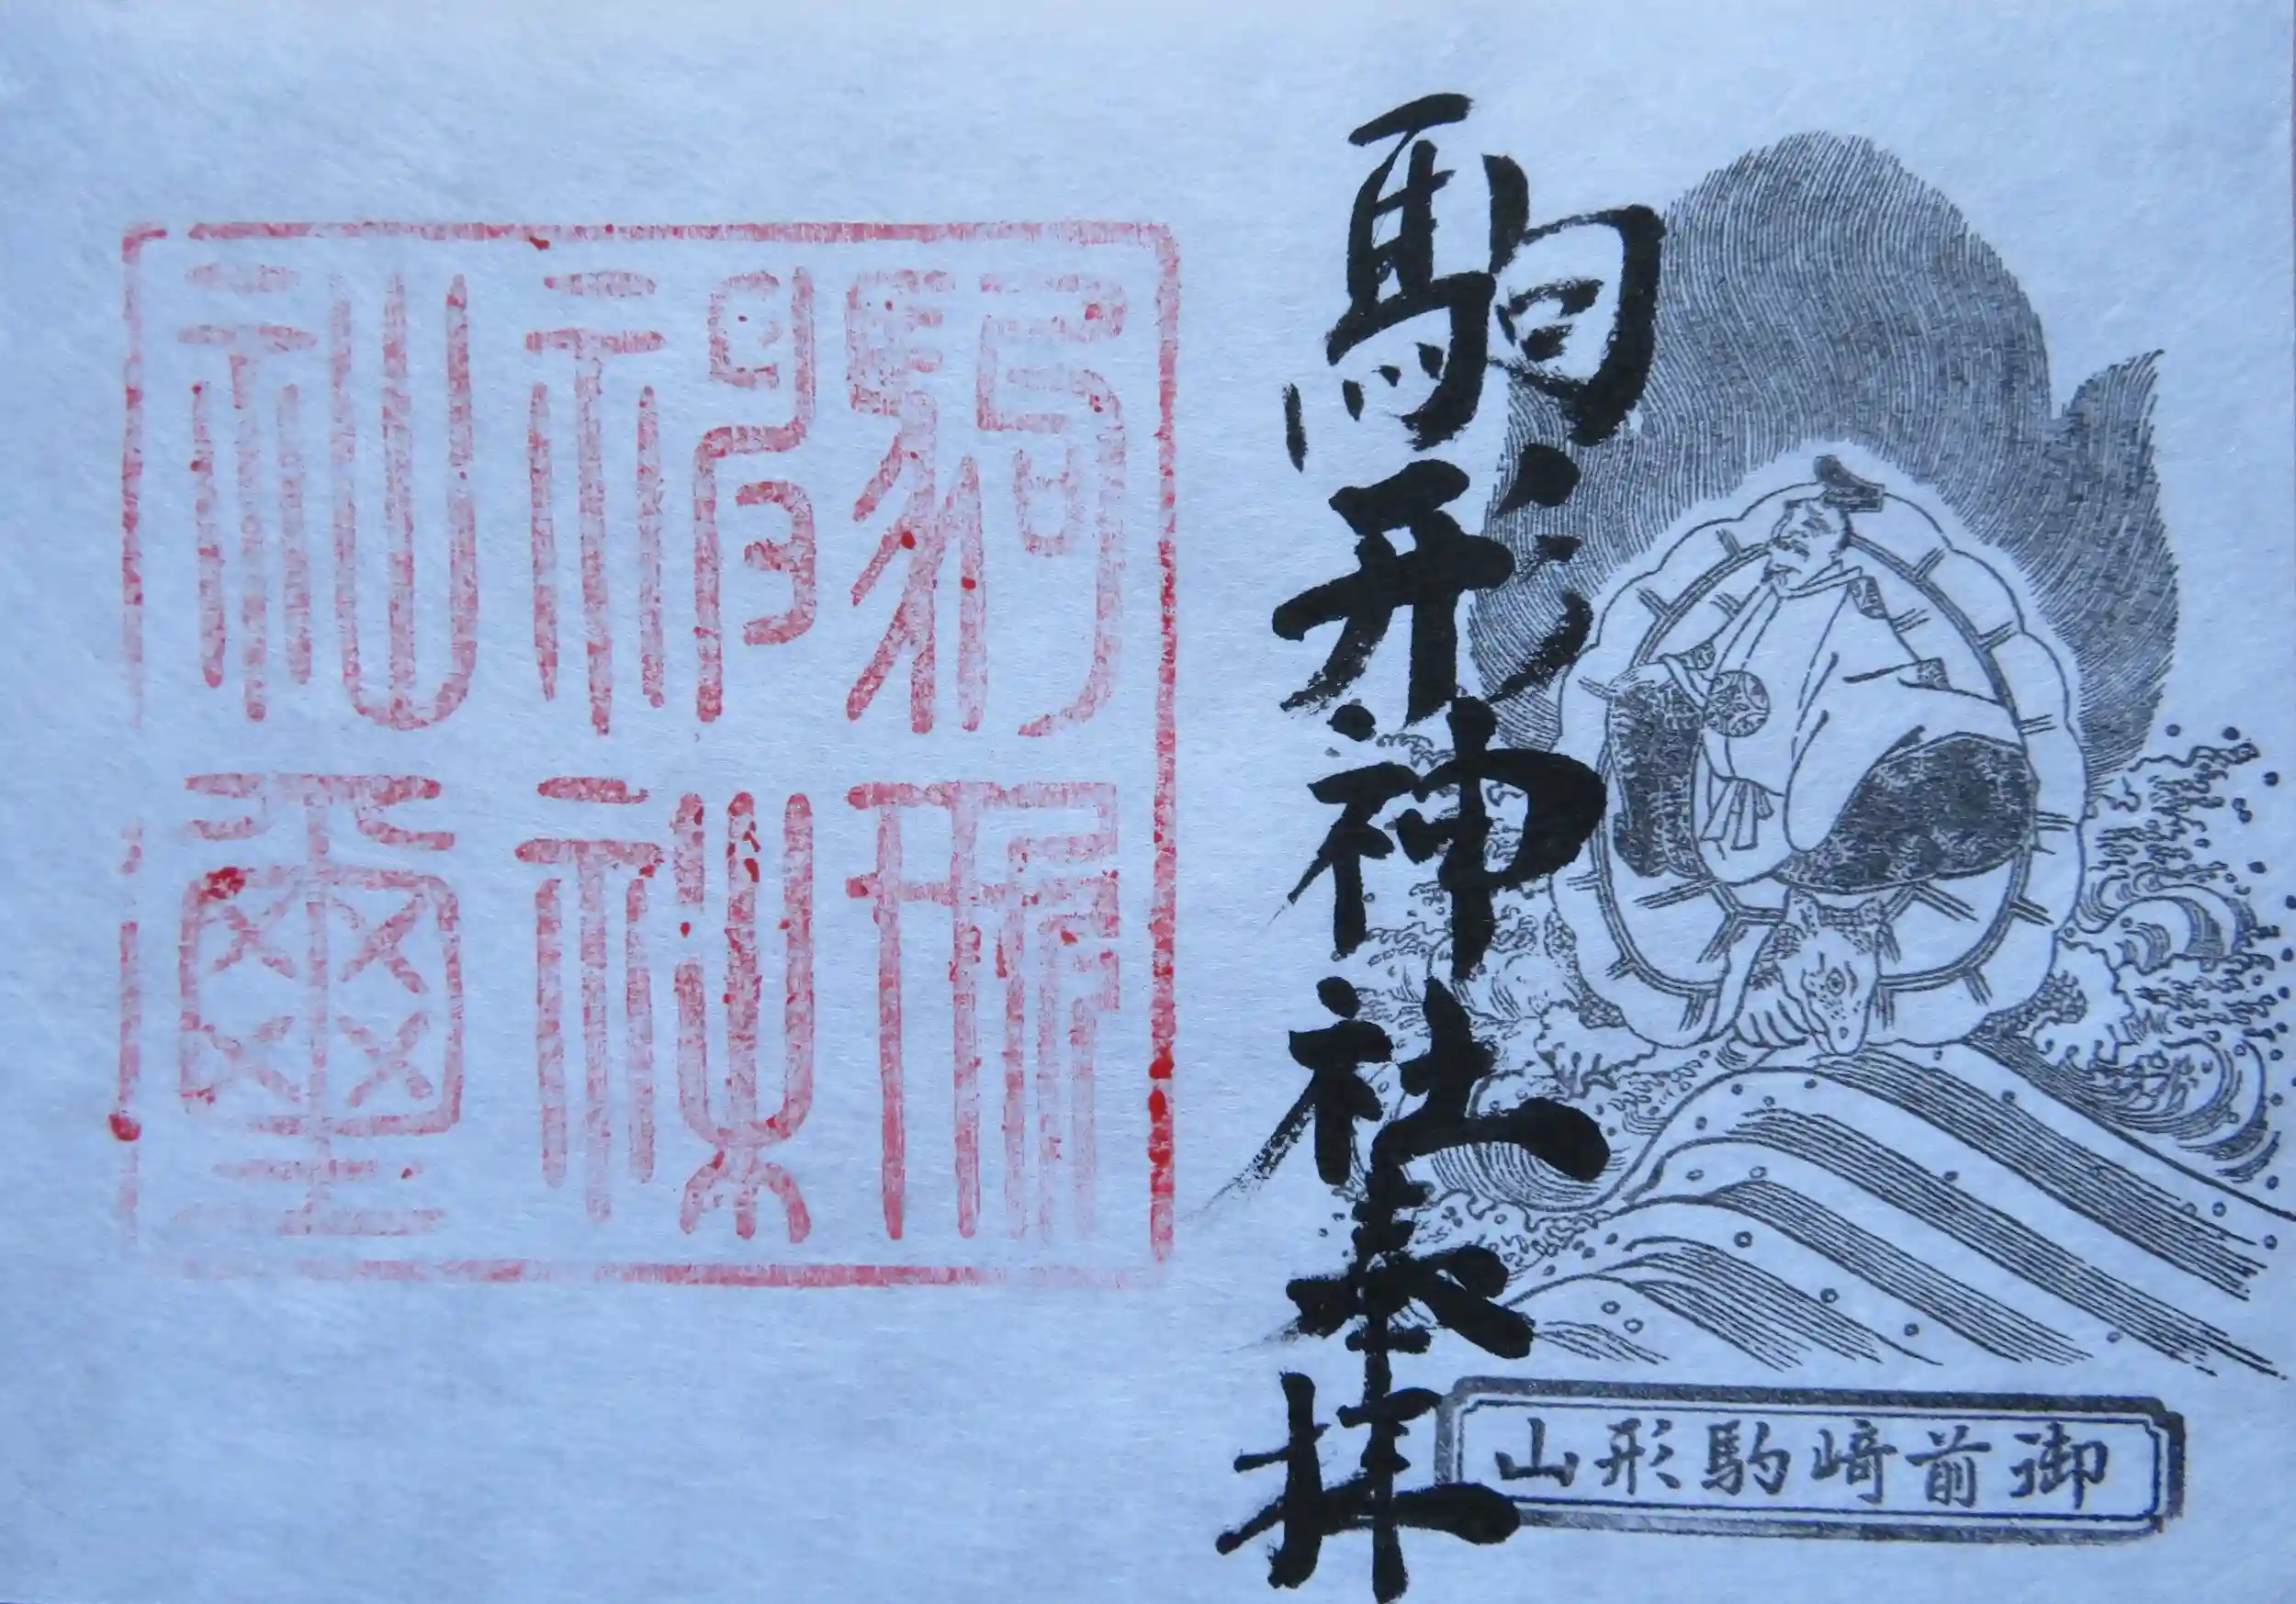 御前崎駒形山
駒形神社奉拝
駒形
神社
神璽